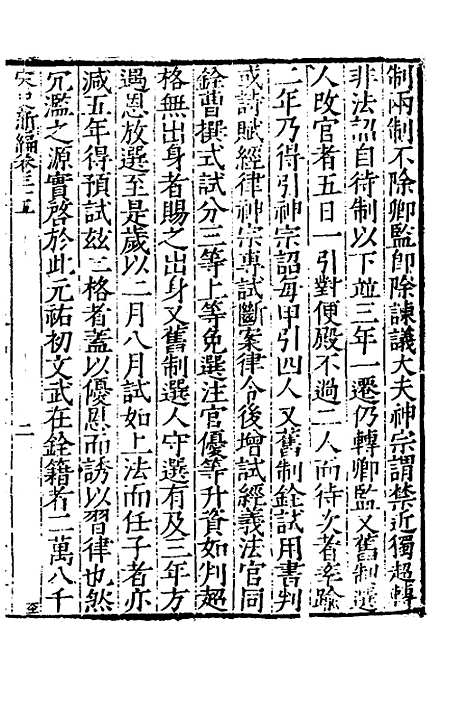 制兩制不除卿監卽除諫議大夫神宗謂禁近獨超轉
非法詔自待制以下並三年一遷仍轉卿監又舊制選
人改官者五日一引對便殿不過二人而待次者率踰
二年乃得引神宗詔每甲引四人又舊制銓試用書判
或詩賦經律神宗專試斷案律令後增試經義法官同
銓曹撰式試分三等上等免選注官優等升資如判超
格無出身者賜之出身又舊制選人守選有及三年方
遇恩放選至是歲以二月八月試如上法而任子者亦
減五年得預試玆三格者蓋以優恩而誘以習律也然
冗濫之源實啓於此元祐初文武在銓籍者二萬八千
宋史新編卷三十五 二